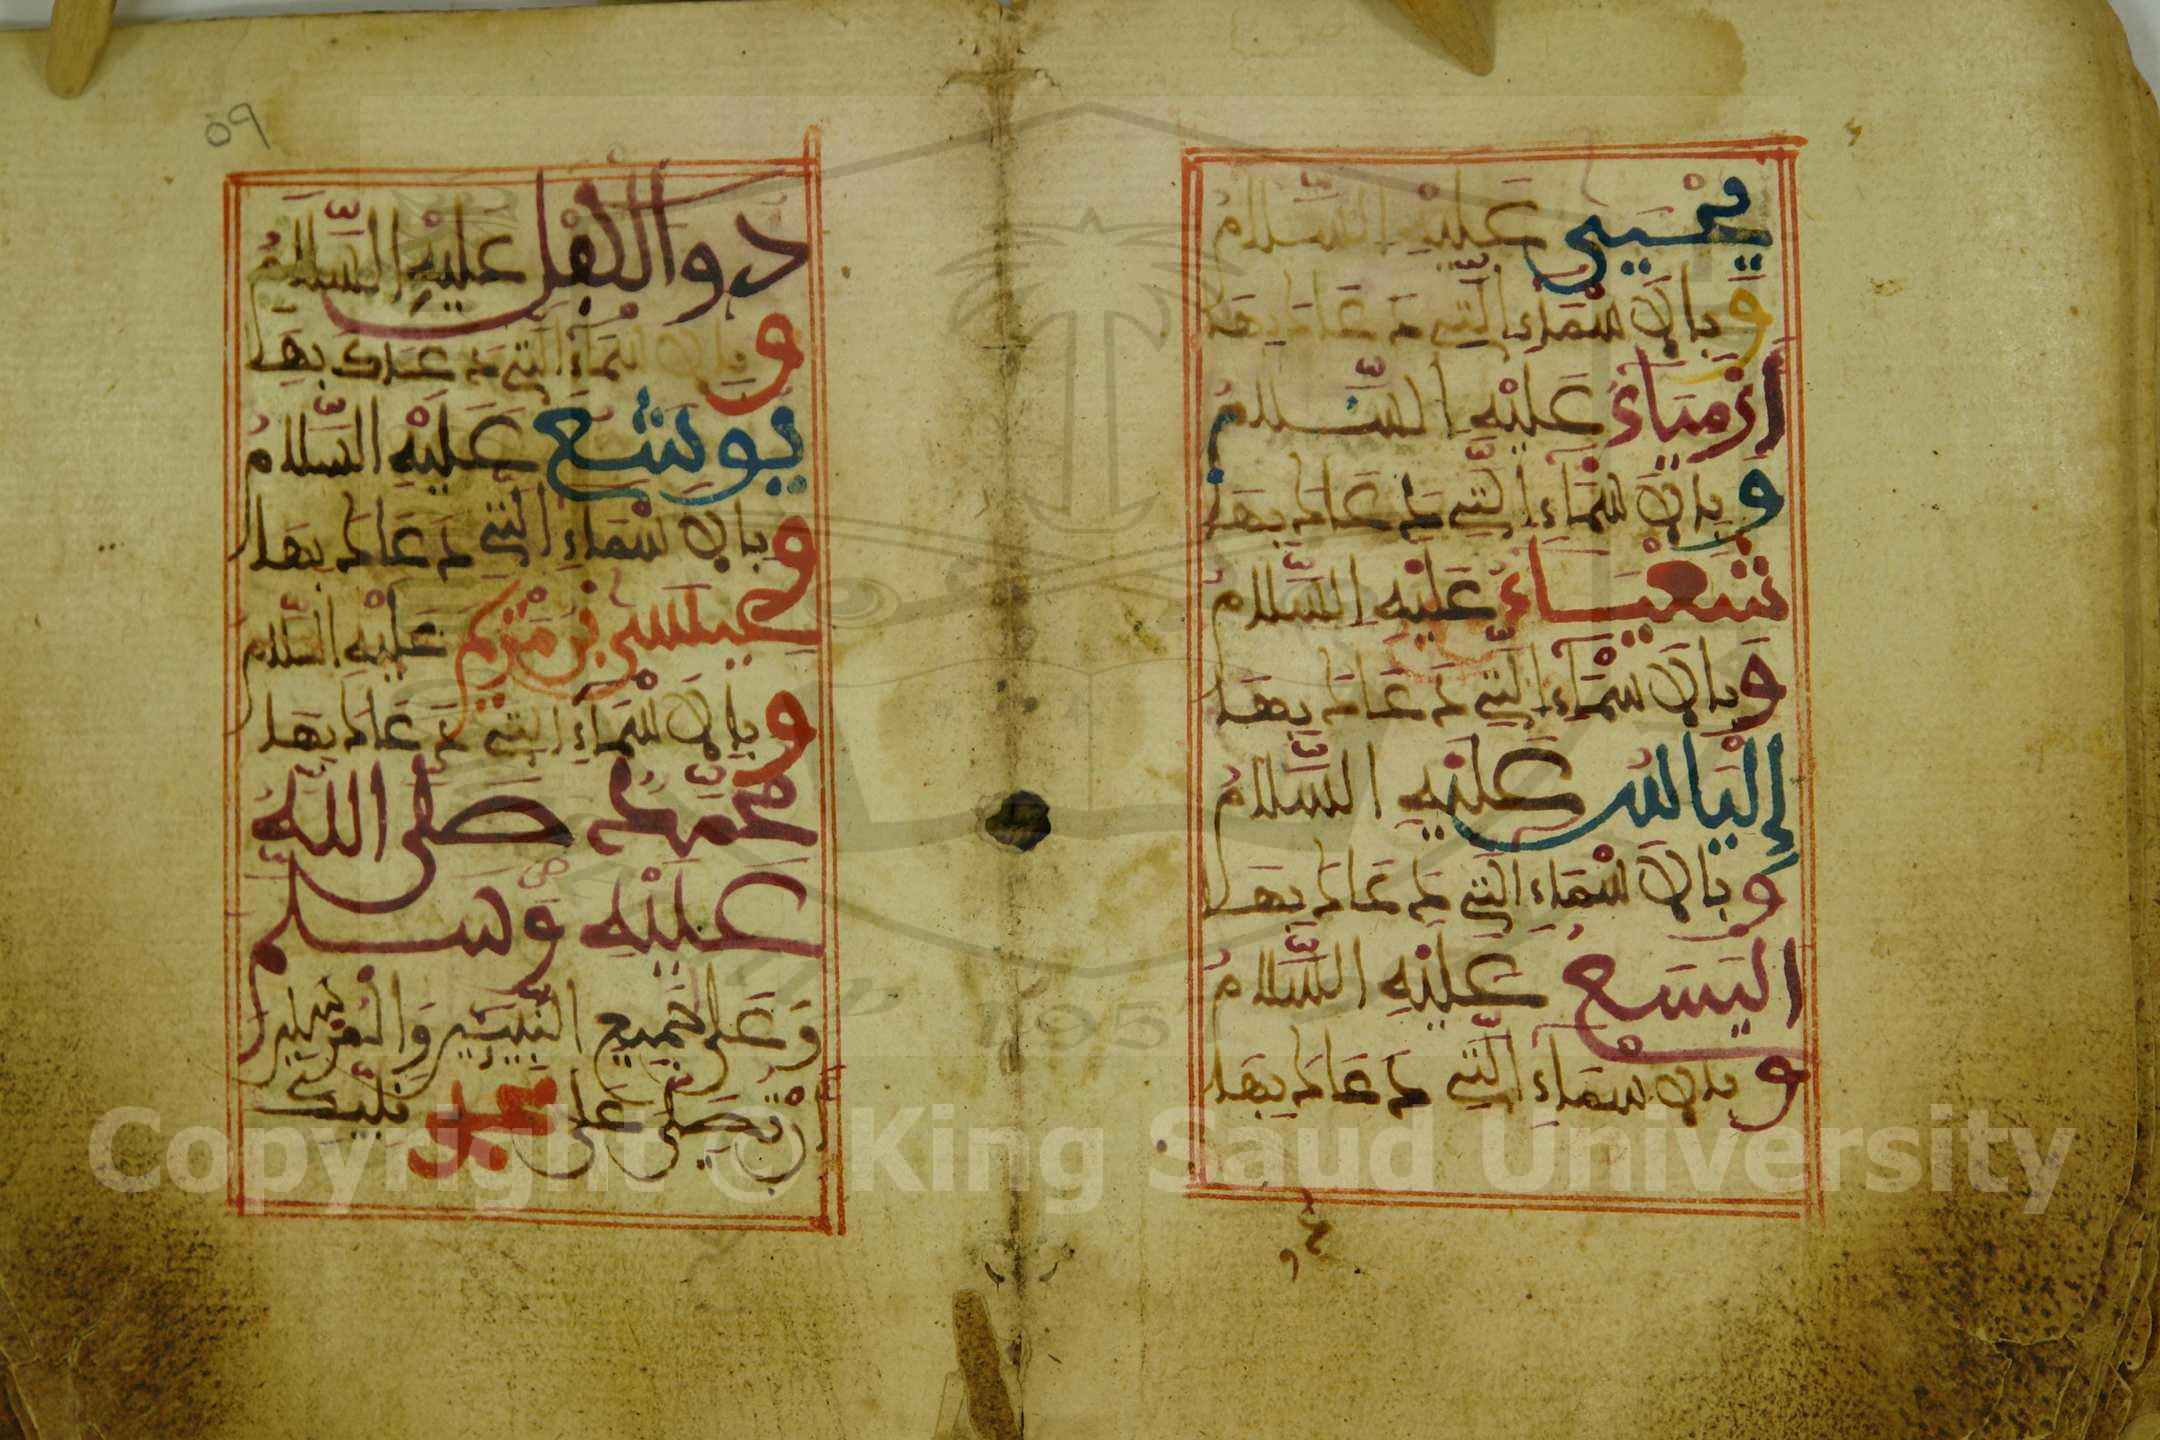 يَحْيَى عَلَيْهِ السَّلَامُ
وَبِالْأَسْمَاءِ الَّتِي دَعَاكَ بِهَا
أَرْمِيَاءُ عَلَيْهِ السَّلَامُ
وَبِالْأَسْمَاءِ الَّتِي دَعَاكَ بِهَا
شَعْيَاءُ عَلَيْهِ السَّلَامُ
وَبِالْأَسْمَاءِ الَّتِي دَعَاكَ بِهَا
إِلْيَاسُ عَلَيْهِ السَّلَامُ
وَبِالْأَسْمَاءِ الَّتِي دَعَاكَ بِهَا
الْيَسَعُ عَلَيْهِ السَّلَامُ
وَبِالْأَسْمَاءِ الَّتِي دَعَاكَ بِهَا
٥٩
ذو الكفل عَلَيْهِ السَّلَامُ
وَبِالْأَسْمَاءِ الَّتِي دَعَاكَ بِهَا
يُوشَعُ عَلَيْهِ السَّلَامُ
وَبِالْأَسْمَاءِ الَّتِي دَعَاكَ بِهَا
عِيسَى بْنُ مَرْيَمَ عَلَيْهِ السَّلَامُ
وَبِالْأَسْمَاءِ الَّتِي دَعَاكَ بِهَا
مُحَمَّدٌ صَلَّى اللَّهُ
عَلَيْهِ وَسَلَّمَ
وَعَلَى جَمِيعِ النَّبِيِّينَ وَالْمُرْسَلِينَ
أَنْ تُصَلِّيَ عَلَى مُحَمَّدٍ نَبِيِّكَ
Copyright © King Saud University
1957